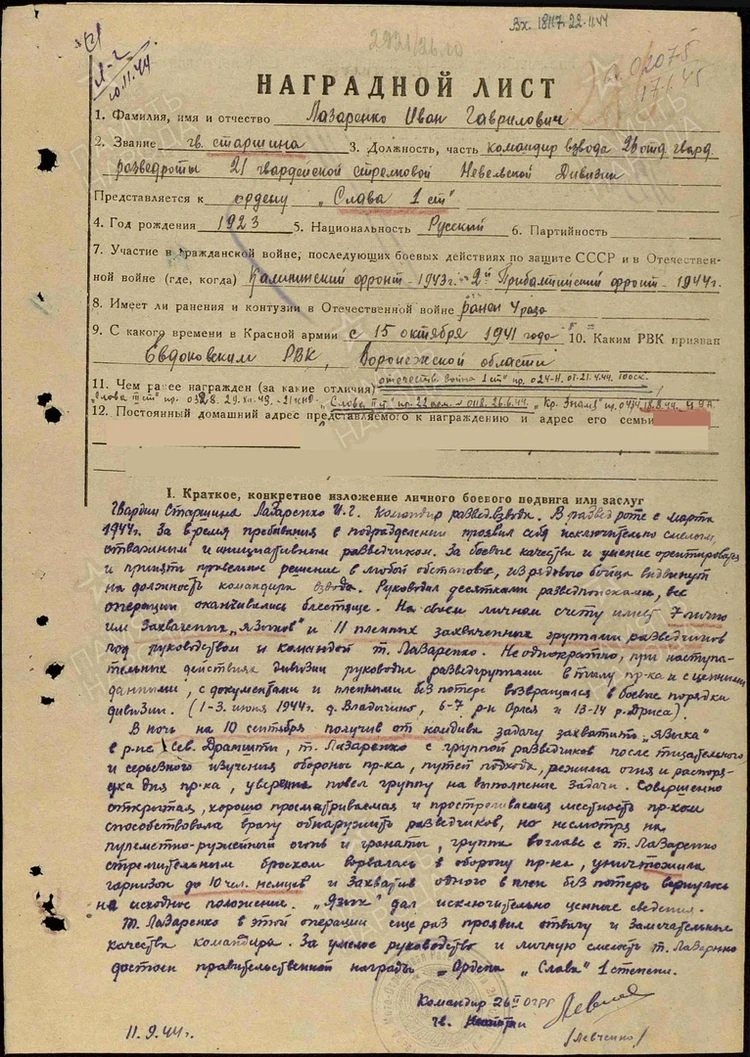 Вх. 18117. 22.11.44
10.11.44
02075
17.1.45
НАГРАДНОЙ ЛИСТ
1. Фамилия, имя и отчество Лазаренко Иван Гаврилович
2. Звание гв. старшина 3. Должность, часть командир взвода 26 отд. гвард.
разведроты 21 гвардейской стрелковой Невельской Дивизии
Представляется к ордену „Слава 1 ст"
4. Год рождения 1923 5. Национальность Русский 6. Партийность
7. Участие в гражданской войне, последующих боевых действиях по защите СССР и в Отечествен-
ной войне (где, когда) Калининский фронт - 1943 г. - 2й Прибалтийский фронт - 1944 г.
8. Имеет ли ранения и контузии в Отечественной войне ранен 4 раза
9. С какого времени в Красной армии с 15 октября 1941 года 10. Каким РВК призван
Евдоковским РВК, Воронежской области
11. Чем ранее награжден (за какие отличия) отечеств. война 1 ст" пр. 024-н. от 21.4.44.
„Слава III ст" пр. „Слава II ст" пр. 22 арм. 26.6.44. „Кр. Знамя" пр. 18.8.44.
12. Постоянный домашний адрес представляемого к награждению и адрес его семьи
I. Краткое, конкретное изложение личного боевого подвига или заслуг
Гвардии Старшина Лазаренко И.Г. командир развед.взвода. В разведроте с марта
1944 г. За время пребывания в подразделении проявил себя исключительно смелым,
отважным и инициативным разведчиком. За боевые качества и умение ориентироваться
и принять правильное решение в любой обстановке, из рядового бойца выдвинут
на должность командира взвода. Руководил десятками разведпоисками, все
операции оканчивались блестяще. На своем личном счету имеет 7 лично
им захваченных „языков" и 11 пленных захваченных группами разведчиков
под руководством и командой т. Лазаренко. Неоднократно, при наступа-
тельных действиях дивизии руководил разведгруппами в тылу пр-ка и с ценными
данными, с документами и пленными без потерь возвращался в боевые порядки
дивизии. (1-3. июня 1944 г. д. Владычино, 6-7 р-н и 13-14 р. Дриса).
В ночь на 10 сентября получив от комдива задачу захватить „языка"
в р-не Сев. Драмшти, т. Лазаренко с группой разведчиков после тщательного
и серьезного изучения обороны пр-ка, путей подхода, режима огня и распоря-
дка дня пр-ка, уверенно повел группу на выполнение задачи. Совершенно
открытая, хорошо просматриваемая и простреливаемая местность пр-ком
способствовала врагу обнаружить разведчиков, но несмотря на
пулеметно-ружейный огонь и гранаты, группа во главе с т. Лазаренко
стремительным броском ворвалась в оборону пр-ка, уничтожила
гарнизон до 10 чел. немцев и захватив одного в плен без потерь вернулось
на исходное положение. „Язык" дал исключительно ценные сведения.
Т. Лазаренко в этой операции еще раз проявил отвагу и замечательные
качества командира. За умелое руководство и личную смелость т. Лазаренко
достоин правительственной награды „Ордена „Слава" 1 степени.
Командир 26й ОГРР
гв.
/Левченко/
11.9.44 г.